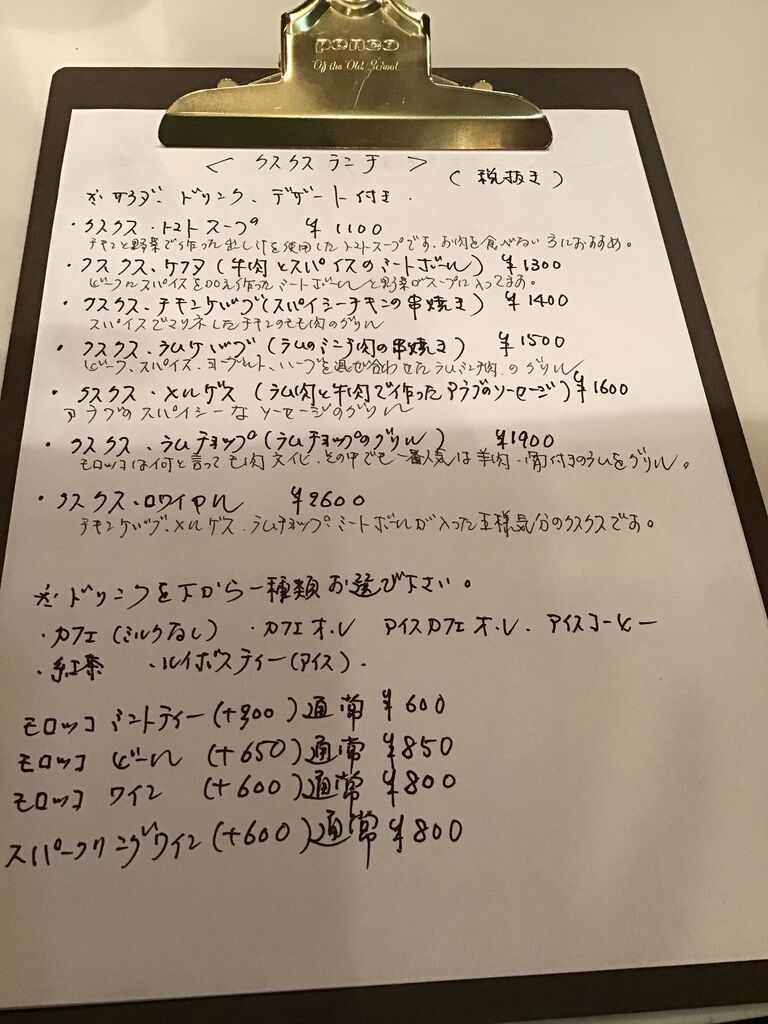 penco
Of the Old School
< クスクスランチ >
(税抜き)
※サラダ、ドリンク、デザート付き.
・クスクス・トマトスープ ¥1100
チキンと野菜で作った出しけを使用したトマトスープです。お肉を食べない方におすすめ。
・クスクス・ケフタ (牛肉とスパイスのミートボール) ¥1300
ビーフにスパイスを加え作ったミートボールと野菜がスープに入ってます。
・クスクス・チキンケバブ(スパイシーチキンの串焼き) ¥1400
スパイスでマリネしたチキンのもも肉のグリル
・クスクス・ラムケバブ (ラムのミンチ肉の串焼き) ¥1500
ビーフ、スパイス、ヨーグルト、ハーブを混ぜ合わせたラムミンチ肉のグリル
・クスクス・メルゲス (ラム肉と牛肉で作ったアラブのソーセージ) ¥1600
アラブのスパイシーなソーセージのグリル
・クスクス・ラムチョップ(ラムチョップのグリル) ¥1900
モロッコは何と言っても肉文化、その中でも一番人気は羊肉・骨付きのラムをグリル。
・クスクス・ロワイヤル ¥2600
チキンケバブ、メルゲス、ラムチョップ、ミートボールが入った王様気分のクスクスです。
※ドリンクを下から一種類お選び下さい。
・カフェ (ミルクなし) ・カフェオ・レ アイスカフェオ・レ、アイスコーヒー
・紅茶 ・ルイボスティー(アイス).
モロッコ ミントティー(+300)通常 ¥600
モロッコ ビール (+650)通常 ¥850
モロッコ ワイン (+600)通常 ¥800
スパークリングワイン(+600)通常 ¥800